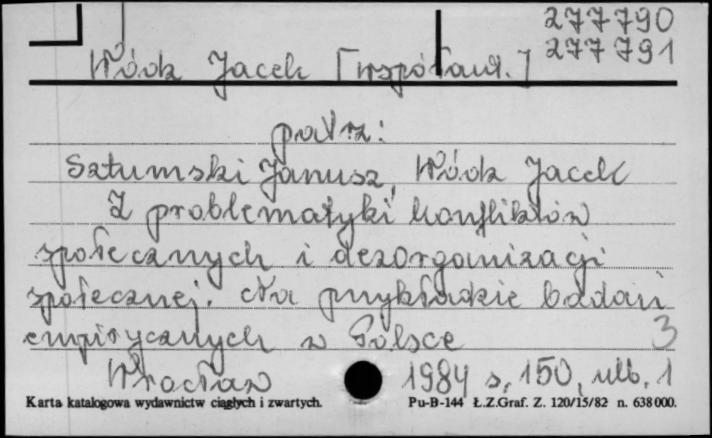 277790
277791
Wódz Jacek [współaut.]
patrz:
Sztumski Janusz, Wódz Jacek
Z problematyki konfliktów
społecznych i dezorganizacji
społecznej. Na przykładzie badań
empirycznych w Polsce 3
Wrocław 1984 s. 150, nlb. 1
Karta katalogowa wydawnictw ciągłych i zwartych. Pu-B-144 Ł.Z.Graf. Z. 120/15/82 n. 638000.